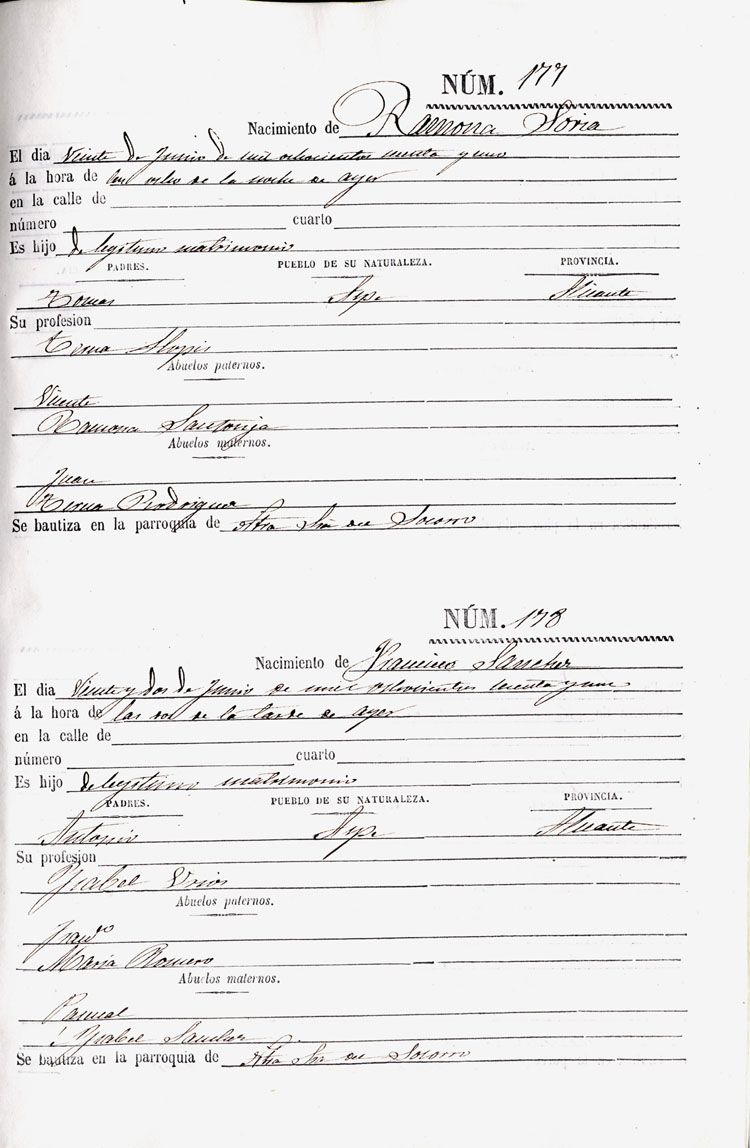 NÚM. 177
Nacimiento de Ramona Soria
El dia Veinte de Junio de mil ochocientos sesenta y uno
á la hora de las ocho de la noche de ayer
en la calle de
número cuarto
Es hijo de legitimo matrimonio
PADRES. PUEBLO DE SU NATURALEZA. PROVINCIA.
Tomas Aspe Alicante
Su profesion
Teresa Llopis
Abuelos paternos.
Vicente
Ramona Santonja
Abuelos maternos.
Juan
Teresa Rodriguez
Se bautiza en la parroquia de Ntra Sra del Socorro
NÚM. 178
Nacimiento de Francisco Sanchez
El dia Veinte y dos de Junio de mil ochocientos sesenta y uno
á la hora de las dos de la tarde de ayer
en la calle de
número cuarto
Es hijo de legitimo matrimonio
PADRES. PUEBLO DE SU NATURALEZA. PROVINCIA.
Antonio Aspe Alicante
Su profesion
Ysabel Urios
Abuelos paternos.
Franco
Maria Romero
Abuelos maternos.
Pascual
é Ysabel Sanchez
Se bautiza en la parroquia de Ntra Sra del Socorro